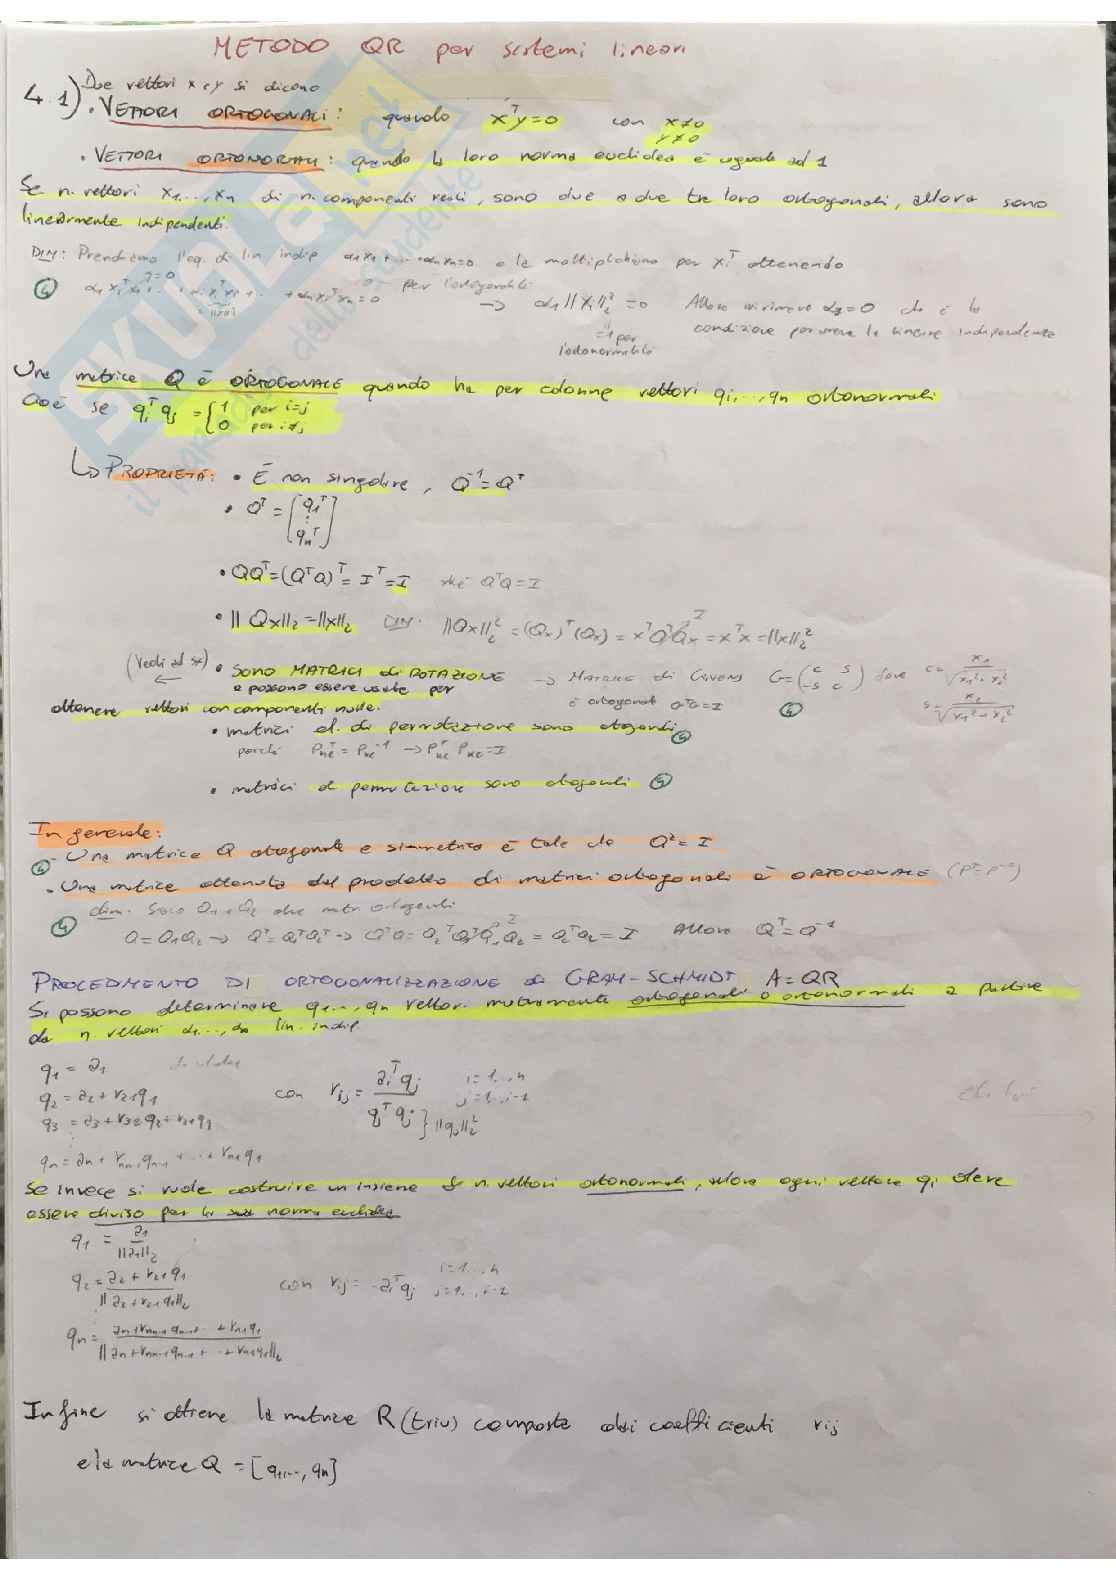 METODO QR per sistemi lineari
4.1) Due vettori x e y si dicono
• VETTORI ORTOGONALI: quando xᵀy=0 con x≠0
y≠0
• VETTORI ORTONORMALI: quando la loro norma euclidea è uguale ad 1
Se n. vettori x1...,xn di n. componenti reali, sono due a due tra loro ortogonali, allora sono
linearmente indipendenti.
DIM: Prendiamo l'eq. di lin indip α1x1+...+αnxn=0 e la moltiplichiamo per xiᵀ ottenendo
per l'ortogonalità
→ α1||xi||₂²=0 Allora αi=0 che è la
=1 per
l'ortonormalità
condizione per avere la lineare indipendenza
Una matrice Q è ORTOGONALE quando ha per colonne vettori qi,...,qn ortonormali
Cioè se qiᵀqj = {1 per i=j
0 per i≠j
↳ PROPRIETÀ: • È non singolare, Q⁻¹=Qᵀ
• Qᵀ = [q1ᵀ
⋮
qnᵀ]
• QQᵀ=(QᵀQ)ᵀ=Iᵀ=I QᵀQ=I
• ||Qx||₂=||x||₂ DIM: ||Qx||₂²=(Qx)ᵀ(Qx)=xᵀQᵀQx=xᵀx=||x||₂²
(Vedi ad sx) • SONO MATRICI di ROTAZIONE → MATRICE di GIVENS G=(c s
-s c) dove c=x1/√(x1²+x2²)
e possono essere usate per
è ortogonale GᵀG=I s=x2/√(x1²+x2²)
ottenere vettori con componenti nulle.
• matrici el. di permutazione sono otogonali
perché Pkeᵀ=Pke⁻¹ → Pkeᵀ Pke=I
• matrici di permutazione sono otogonali
In generale:
- Una matrice Q otogonale e simmetrica è tale che Q²=I
• Una matrice ottenuta dal prodotto di matrici ortogonali è ORTOGONALE (Pᵀ=P⁻¹)
dim: Siano Q1 e Q2 due matr ortogonali
Q=Q1Q2 → Qᵀ=Q1ᵀQ2ᵀ → QᵀQ=Q2ᵀQ1ᵀQ1Q2=Q2ᵀQ2=I Allora Qᵀ=Q⁻¹
PROCEDIMENTO DI ORTOGONALIZZAZIONE di GRAM-SCHMIDT A=QR
Si possono determinare q1...,qn vettori mutuamente ortogonali o ortonormali a partire
da n. vettori a1...,an lin. indip.
q1 = a1
q2 = a2+r21q1 con rij = aiᵀqj / qjᵀqj } ||qj||₂² i=1...,n
j=1...i-1
q3 = a3+r32q2+r31q1
qn = an+rnn-1qn-1+...+rn1q1
Se invece si vuole costruire un insieme di n. vettori ortonormali, allora ogni vettore qi deve
essere diviso per la sua norma euclidea
q1 = a1/||a1||₂
q2 = a2+r21q1/||a2+r21q1||₂ con rij=-aiᵀqj i=1...,n
j=1...,i-1
qn = an+rnn-1qn-1+...+rn1q1/||an+rnn-1qn-1+...+rn1q1||₂
Infine si ottiene la matrice R (triu) composta dai coefficienti rij
e la matrice Q = [q1,...,qn]